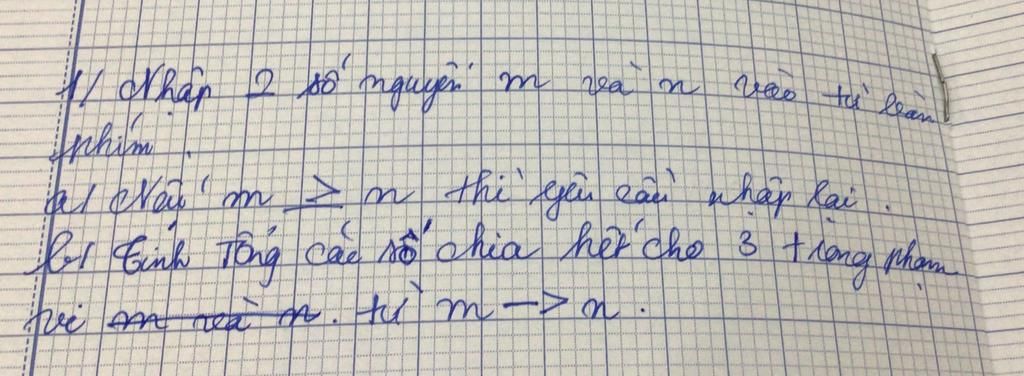 1/ Nhập 2 số nguyên m và n vào từ bàn
phím.
a/ Nếu m ≥ n thì yêu cầu nhập lại.
b/ Tính Tổng các số chia hết cho 3 trong phạm
vi m và n. từ m -> n.